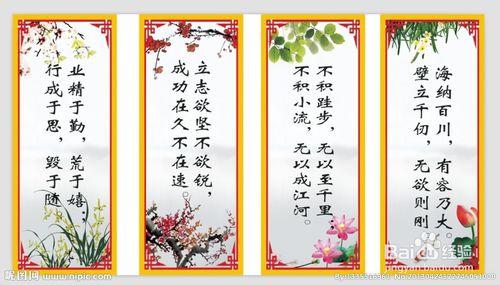 业精于勤，荒于嬉；
行成于思，毁于随
立志欲坚不欲锐，
成功在久不在速。
不积跬步，无以至千里，
不积小流，无以成江河。
海纳百川，有容乃大。
壁立千仞，无欲则刚
昵图网 www.nipic.com
Baidu 经验
jingyan.baidu.com